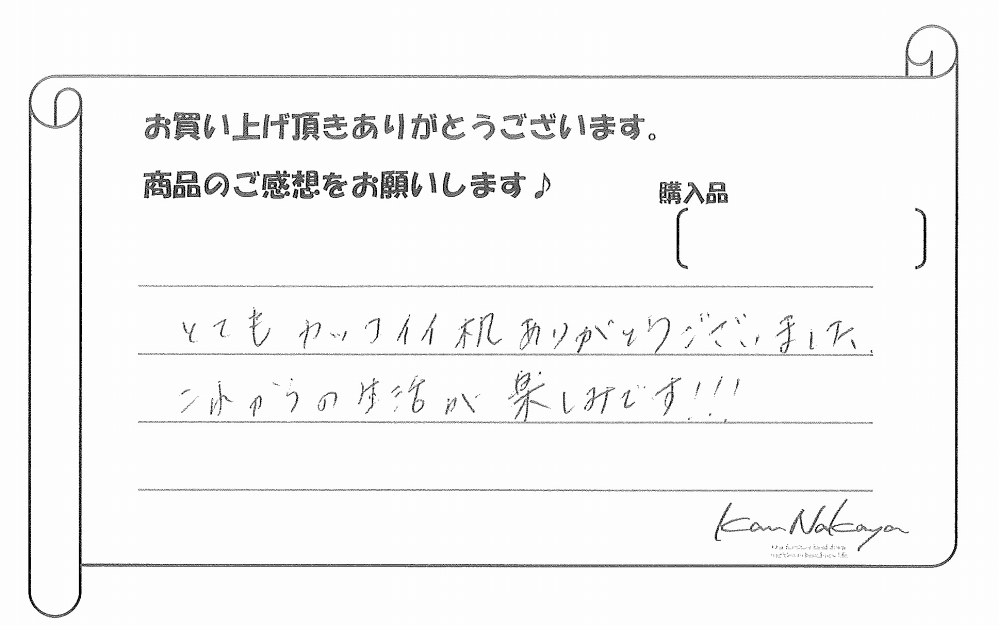 お買い上げ頂きありがとうございます。
商品のご感想をお願いします♪
購入品
とてもカッコイイ机ありがとうございました。
これからの生活が楽しみです!!!
Kan Nakaya